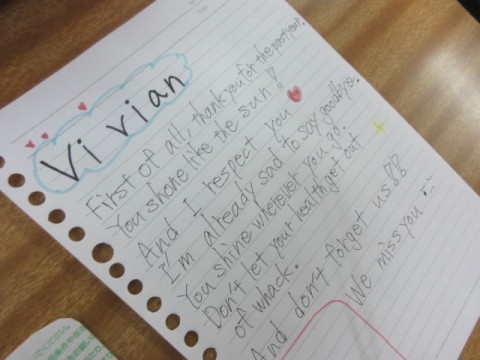 Vivian
First of all, thank you for the past year.
You shone like the sun!
And I respect you
I'm already sad to say goodbye.
You shine wherever you go.
Don't let your health get out
of whack.
And don't forget us!!
We miss you